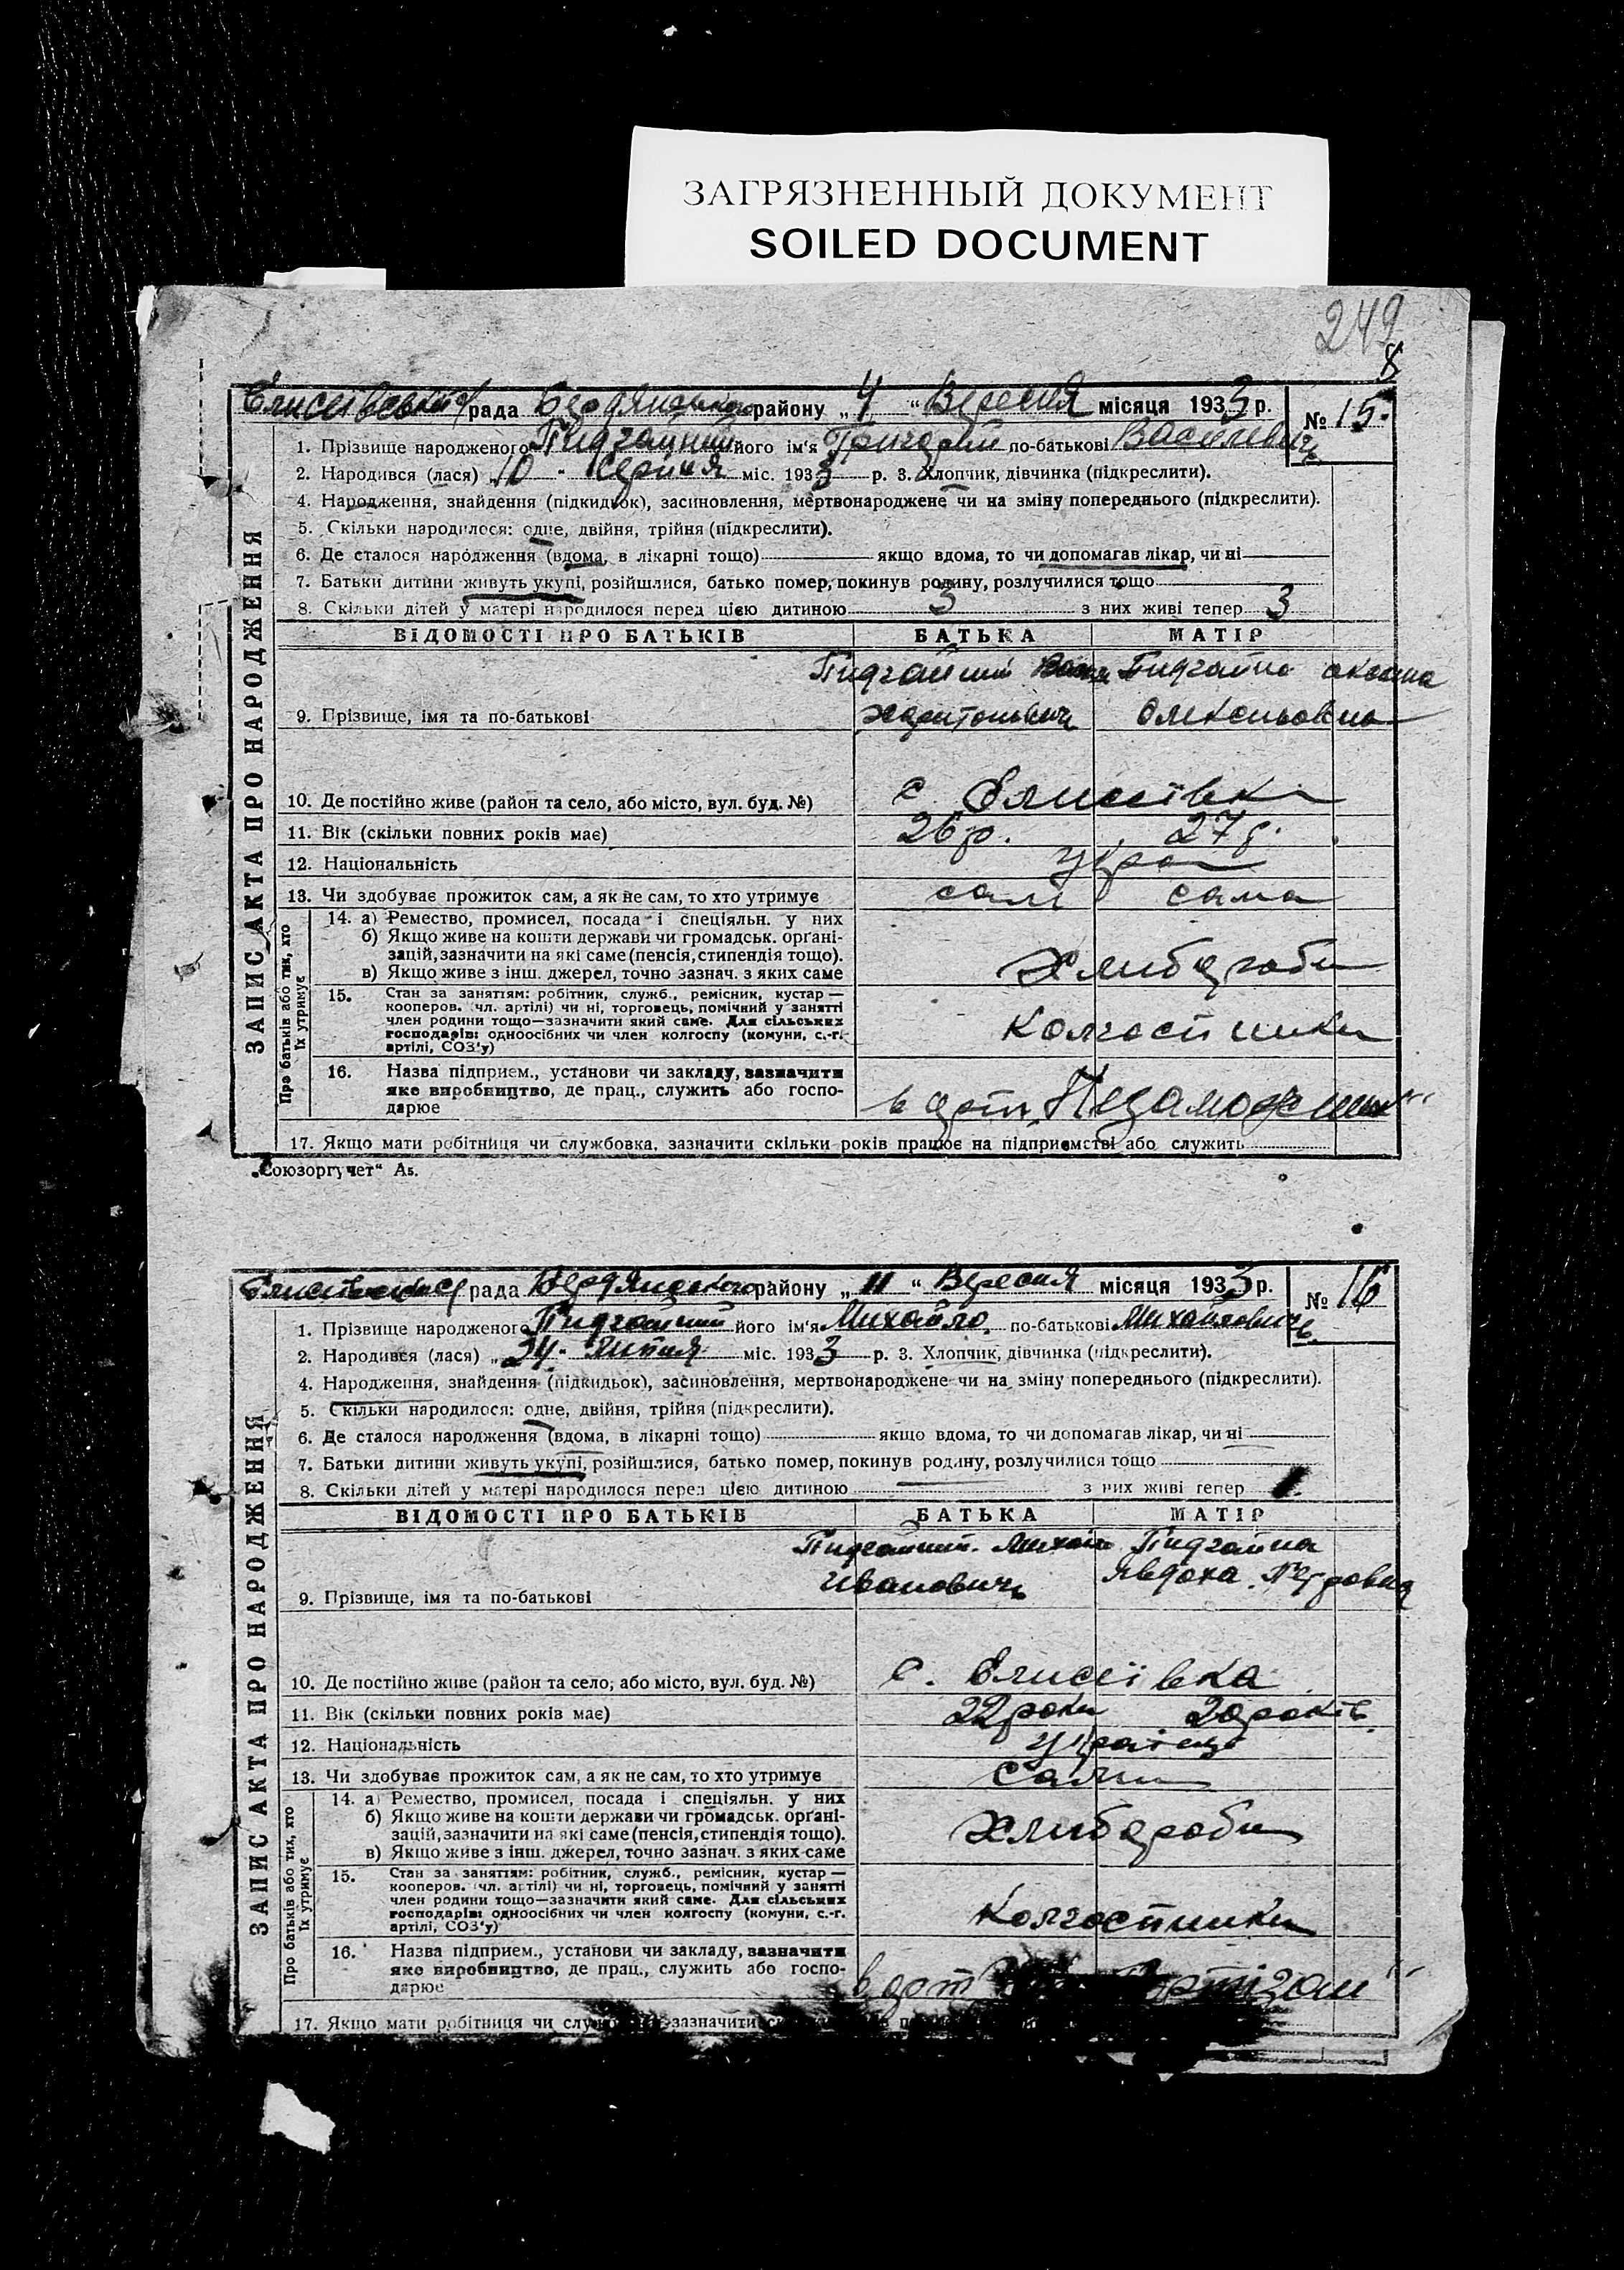 ЗАГРЯЗНЕННЫЙ ДОКУМЕНТ
SOILED DOCUMENT
249
8
Єлисеївська рада Бердянського району „4“ Вересня місяця 1933 р. № 15.
1. Прізвище народженого Пидгайний його ім'я Григорій по-батькові Васильевич
2. Народився (лася) „10 - Серпня міс. 1933 р. 3. Хлопчик, дівчинка (підкреслити).
4. Народження, знайдення (підкидьок), засиновлення, мертвонароджене чи на зміну попереднього (підкреслити).
5. Скільки народилося: одне, двійня, трійня (підкреслити).
6. Де сталося народження (вдома, в лікарні тощо) якщо вдома, то чи допомагав лікар, чи ні
7. Батьки дитини живуть укупі, розійшлися, батько помер, покинув родину, розлучилися тощо
8. Скільки дітей у матері народилося перед цією дитиною 3 з них живі тепер 3
ВІДОМОСТІ ПРО БАТЬКІВ БАТЬКА МАТІР
Пидгайний Пидгайна оксана
9. Прізвище, імя та по-батькові Харитонович Олексиовна
10. Де постійно живе (район та село, або місто, вул. буд. №) с. Єлисеївка
11. Вік (скільки повних років має) 26 р. 27 р.
12. Національність укра
13. Чи здобуває прожиток сам, а як не сам, то хто утримує сам сама
14. а) Ремество, промисел, посада і спеціяльн. у них
б) Якщо живе на кошти держави чи громадськ. органі-
зацій, зазначити на які саме (пенсія, стипендія тощо).
в) Якщо живе з інш. джерел, точно зазнач. з яких саме
Хлибороби
15. Стан за заняттям: робітник, служб., ремісник, кустар —
кооперов. (чл. артілі) чи ні, торговець, помічний у занятті
член родини тощо—зазначити який саме. Для сільських
господарів: одноосібних чи член колгоспу (комуни, с.-г.
артілі, СОЗ'у)
Колгоспники
16. Назва підприєм., установи чи закладу, зазначити
яке виробництво, де прац., служить або госпо-
дарює
в арт. Незаможник"
17. Якщо мати робітниця чи службовка, зазначити скільки років працює на підприємстві або служить
ЗАПИС АКТА ПРО НАРОДЖЕННЯ
Про батьків або тих, хто
їх утримує
„Союзоргучет“ А5.
Єлисеївська рада Бердянського району „11“ Вересня місяця 1933 р. № 16
1. Прізвище народженого Пидгайний його ім'я Михайло по-батькові Михайлович
2. Народився (лася) „24 - Липня міс. 1933 р. 3. Хлопчик, дівчинка (підкреслити).
4. Народження, знайдення (підкидьок), засиновлення, мертвонароджене чи на зміну попереднього (підкреслити).
5. Скільки народилося: одне, двійня, трійня (підкреслити).
6. Де сталося народження (вдома, в лікарні тощо) якщо вдома, то чи допомагав лікар, чи ні
7. Батьки дитини живуть укупі, розійшлися, батько помер, покинув родину, розлучилися тощо
8. Скільки дітей у матері народилося перед цією дитиною з них живі тепер 1
ВІДОМОСТІ ПРО БАТЬКІВ БАТЬКА МАТІР
Пидгайний Михайло Пидгайна
Иванович Явдоха Петровна
9. Прізвище, імя та по-батькові
10. Де постійно живе (район та село, або місто, вул. буд. №) с. Єлисеївка
11. Вік (скільки повних років має) 22 роки 20 років
12. Національність українці
13. Чи здобуває прожиток сам, а як не сам, то хто утримує Сами
14. а) Ремество, промисел, посада і спеціяльн. у них
б) Якщо живе на кошти держави чи громадськ. органі-
зацій, зазначити на які саме (пенсія, стипендія тощо).
в) Якщо живе з інш. джерел, точно зазнач. з яких саме
Хлибороби
15. Стан за заняттям: робітник, служб., ремісник, кустар —
кооперов. (чл. артілі) чи ні, торговець, помічний у занятті
член родини тощо—зазначити який саме. Для сільських
господарів: одноосібних чи член колгоспу (комуни, с.-г.
артілі, СОЗ'у)
Колгоспники
16. Назва підприєм., установи чи закладу, зазначити
яке виробництво, де прац., служить або госпо-
дарює
в арт Партізан"
17. Якщо мати робітниця чи зазначити
ЗАПИС АКТА ПРО НАРОДЖЕННЯ
Про батьків або тих, хто
їх утримує